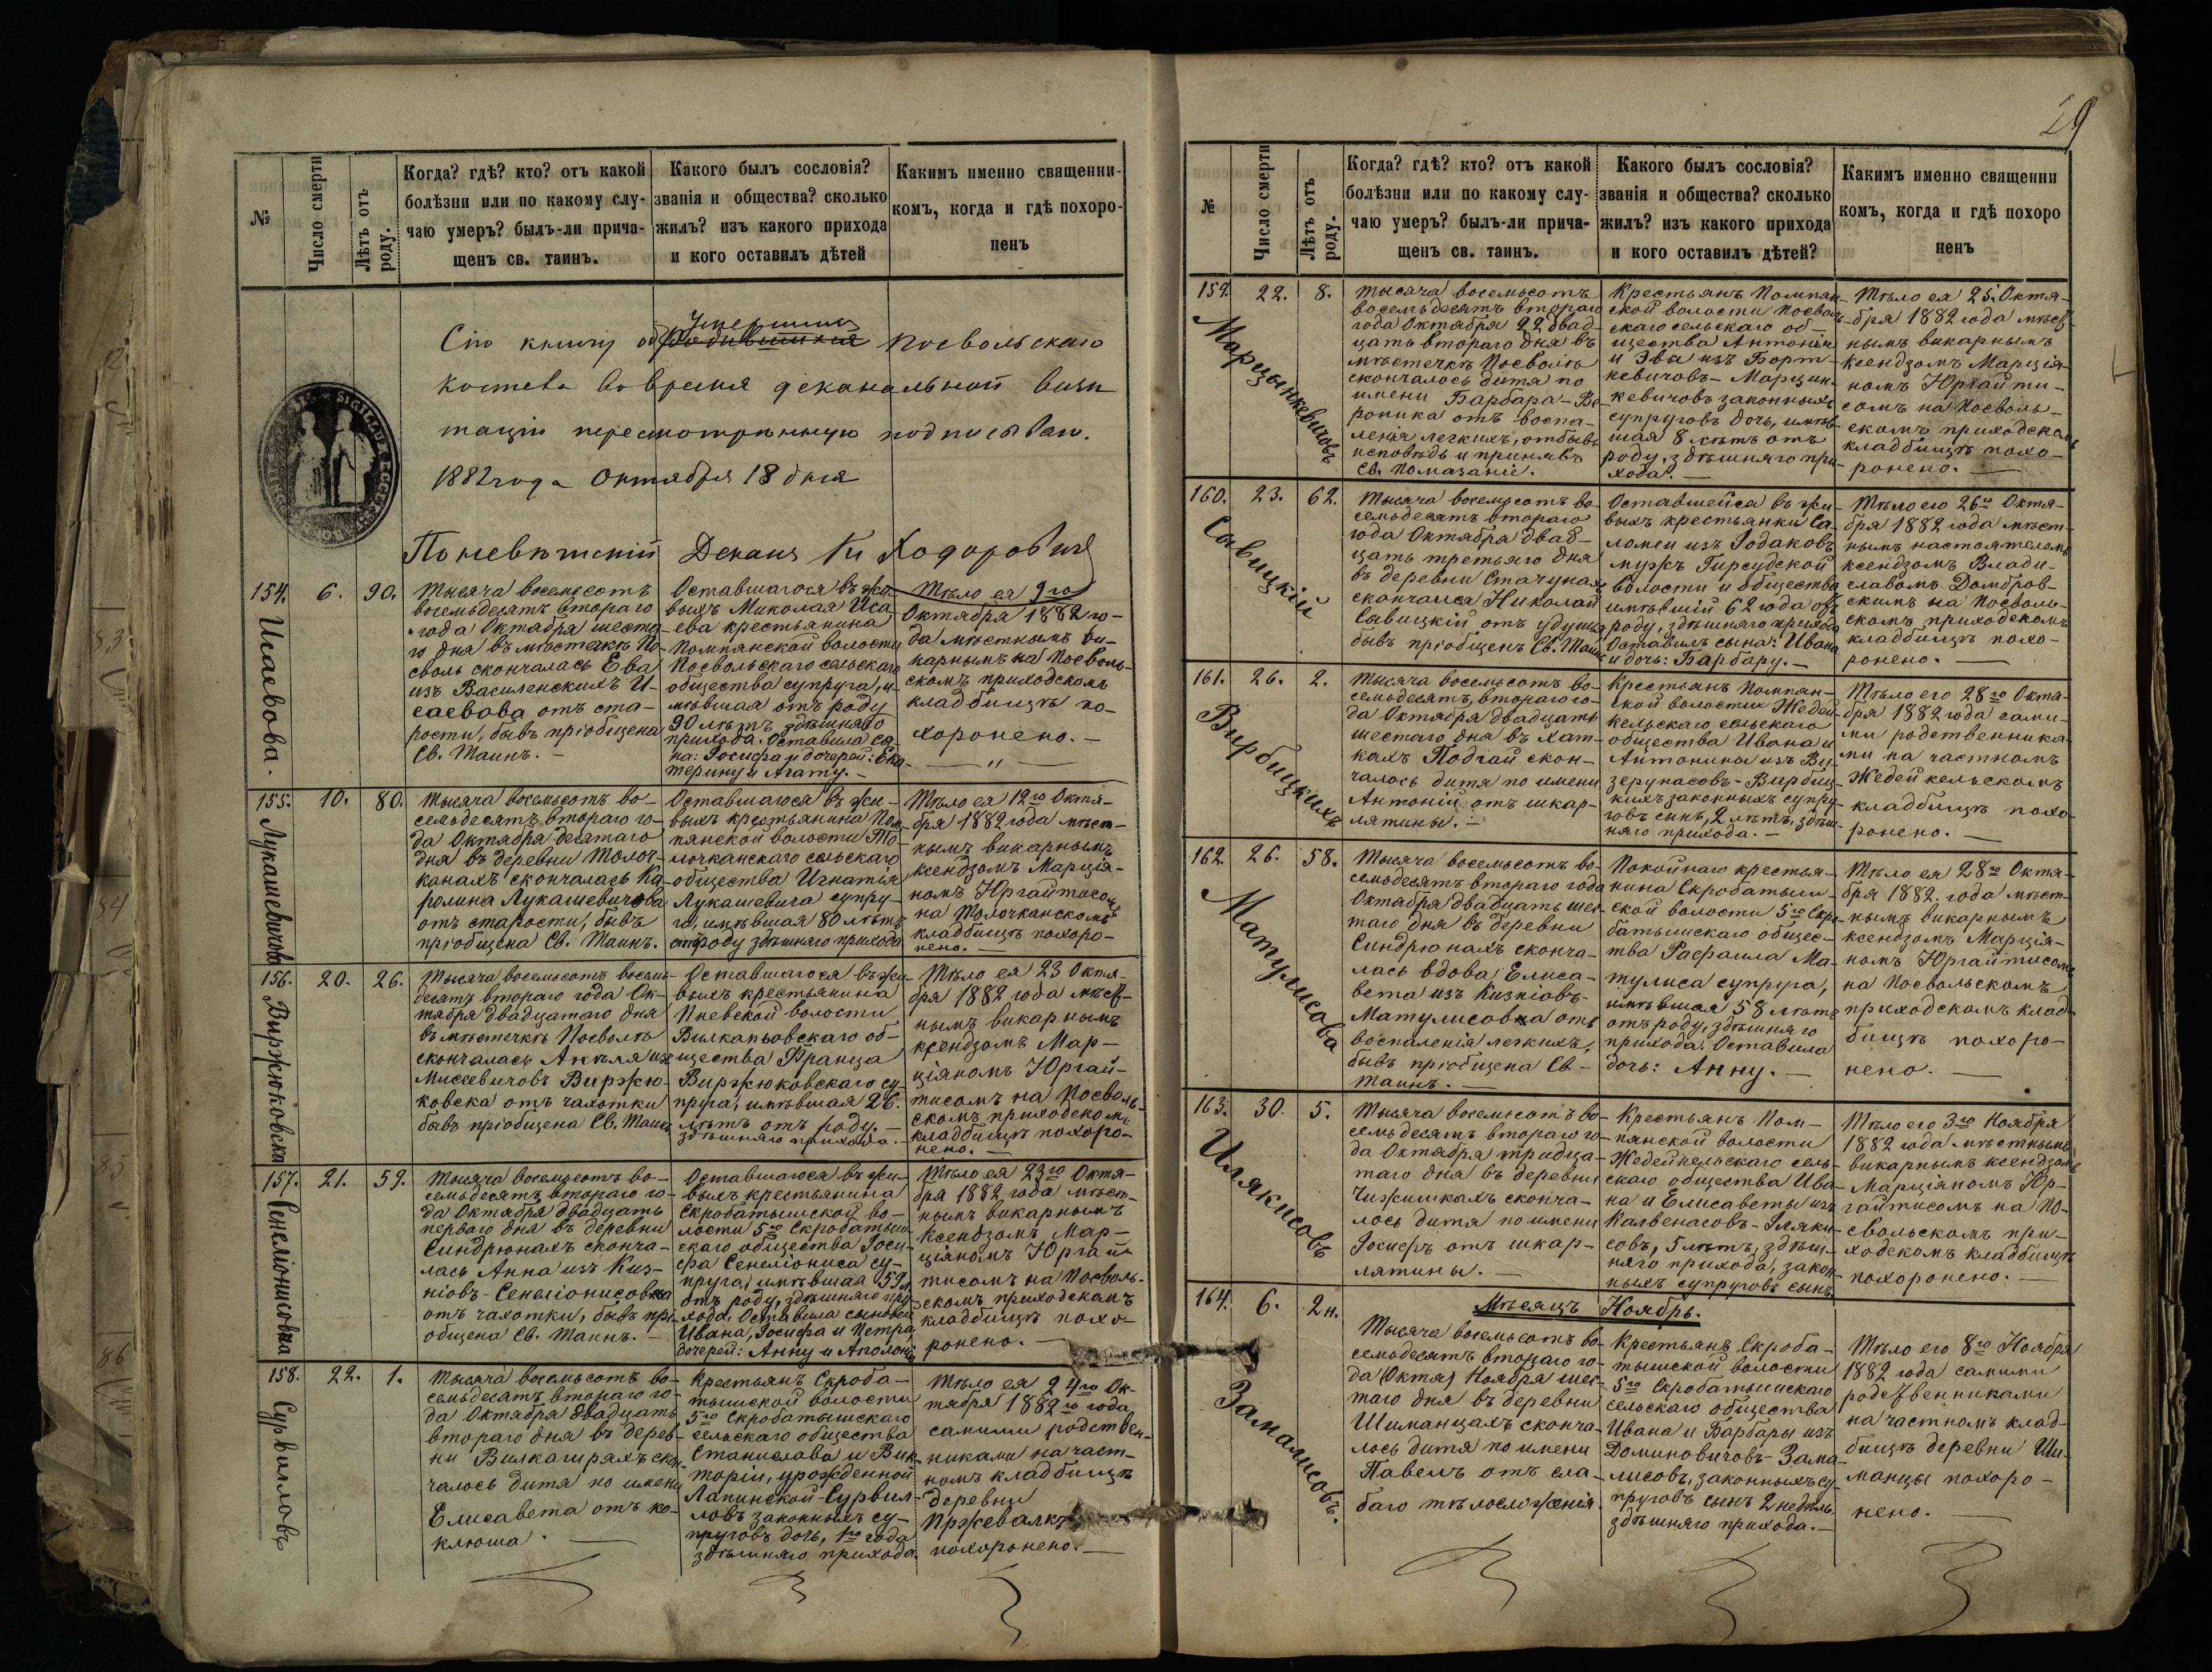 29
№
Число смерти
Лѣтъ отъ роду.
Когда? гдѣ? кто? отъ какой
болѣзни или по какому слу-
чаю умеръ? былъ-ли прича-
щенъ св. таинъ.
Какого былъ сословія?
званія и общества? сколько
жилъ? изъ какого прихода
и кого оставилъ дѣтей
Какимъ именно священни-
комъ, когда и гдѣ похоро-
ненъ
Сію книгу объ умершихъ Посвольскаго
костела во время деканальной визи
таціи пересмотрѣнную подписывалъ.
1882 года Октября 18 дня
Поневѣжскій Деканъ Кс Ходоровичъ
154. 6. 90.
Исаевова.
Тысяча восемьсотъ
восемьдесятъ втораго
года Октября шеста-
го дня въ мѣстечкѣ По-
своль скончалась Ева
изъ Василенскихъ И-
саевова отъ ста-
рости, бывъ пріобщена
Св. Таинъ. —
Оставшагося въ жи-
выхъ Миколая Иса
ева крестьянина
Помпянской волости
Посвольскаго сельскаго
общества супруга, и-
мѣвшая отъ роду
90 лѣтъ здѣшняго
прихода. Оставила сы-
на: Іосифа и дочерей: Ека-
терину и Агату. —
Тѣло ея 9го
Октября 1882 го-
да мѣстнымъ ви-
карнымъ на Посволь-
скомъ приходскомъ
кладбищѣ по-
хоронено. —
— " —
155. 10. 80.
Лукашевичова
Тысяча восемьсотъ во-
семьдесятъ втораго го-
да Октября десятаго
дня въ деревни Толоч-
канахъ скончалась Ка-
ролина Лукашевичова
отъ старости, бывъ
пріобщена Св. Таинъ.
Оставшагося въ жи-
выхъ крестьянина Пом-
пянской волости То-
лочканскаго сельскаго
общества Игнатія
Лукашевича супру-
га, имѣвшая 80 лѣтъ
отъ роду здѣшняго прихода
Тѣло ея 12го Октя-
бря 1882 года мѣст-
нымъ викарнымъ
ксендзомъ Марція-
номъ Юргайтисомъ
на Толочканскомъ
кладбищѣ похоро-
нено. —
156. 20. 26.
Виржюковска
Тысяча восемьсотъ восемь-
десятъ втораго года Ок-
тября двадцатаго дня
въ мѣстечкѣ Посволѣ
скончалась Анеля изъ
Мисевичовъ Виржю-
ковска отъ чахотки
бывъ пріобщена Св. Таинъ
Оставшагося въ жи-
выхъ крестьянина
Пневской волости
Вилкапьовскаго об-
щества Франца
Виржюковскаго су-
пруга, имѣвшая 26.
лѣтъ отъ роду. —
здѣшняго прихода. —
Тѣло ея 23 Октя-
бря 1882 года мѣст-
нымъ викарнымъ
ксендзомъ Мар-
ціяномъ Юргай-
тисомъ на Посволь-
скомъ приходскомъ
кладбищѣ похоро-
нено. —
157. 21. 59.
Сенеліонисовна
Тысяча восемьсотъ во-
семьдесятъ втораго го-
да Октября двадцать
перваго дня въ деревни
Синдрюнахъ сконча-
лась Анна изъ Киз-
ніовъ-Сенеліонисовна
отъ чахотки, бывъ прі-
общена Св. Таинъ. —
Оставшагося въ жи-
выхъ крестьянина
Скробатышской во-
лости 5го Скробатыш
скаго общества Іоси-
фа Сенеліониса су-
пруга, имѣвшая 59 л.
отъ роду, здѣшняго при-
хода, Оставила сыновей
Ивана, Іосифа и Петра,
дочерей: Анну и Аполонію
Тѣло ея 23го Октя-
бря 1882 года мѣст-
нымъ викарнымъ
ксендзомъ Мар-
ціяномъ Юргай-
тисомъ на Посволь-
скомъ приходскомъ
кладбищѣ похо-
ронено. —
158. 22. 1.
Сурвилловъ
Тысяча восемьсотъ во-
семьдесятъ втораго го-
да Октября двадцать
втораго дня въ дерев-
ни Вилкагиряхъ скон-
чалось дитя по имени
Елисавета отъ ко-
клюша. —
Крестьянъ Скроба-
тышской волости
5го Скробатышскаго
сельскаго общества
Станислава и Вик-
торіи, урожденной
Лапинской-Сурвил-
ловъ законныхъ су-
пруговъ дочь, 1го года
здѣшняго прихода.
Тѣло ея 24го Ок-
тября 1882го года
самими родствен-
никами на част-
номъ кладбищѣ
деревни
Пржевалкъ
похоронено. —
№
Число смерти
Лѣтъ отъ роду.
Когда? гдѣ? кто? отъ какой
болѣзни или по какому слу-
чаю умеръ? былъ-ли прича-
щенъ св. таинъ.
Какого былъ сословія?
званія и общества? сколько
жилъ? изъ какого прихода
и кого оставилъ дѣтей?
Какимъ именно священни
комъ, когда и гдѣ похоро
ненъ
159. 22. 8.
Марцынкевичовъ
Тысяча восемьсотъ
восемьдесятъ втораго
года Октября 22 двад-
цать втораго дня въ
мѣстечкѣ Посволѣ
скончалось дитя по
имени Барбара-Ве
роника отъ воспа-
ленія легкихъ, отбывъ
исповѣдь и принявъ
Св. Помазаніе.
Крестьянъ Помпян-
ской волости Посволь-
скаго сельскаго об-
щества Антонія
и Эвы изъ Борт-
кевичовъ-Марцин-
кевичовъ законныхъ
супруговъ дочь, имѣв-
шая 8 лѣтъ отъ
роду, здѣшняго при-
хода. —
Тѣло ея 25. Октя-
бря 1882 года мѣст-
нымъ викарнымъ
ксендзомъ Марція-
номъ Юргайти-
сомъ на Посволь-
скомъ приходскомъ
кладбищѣ похо-
ронено. —
160. 23. 62.
Савицкій
Тысяча восемьсотъ во-
семьдесятъ втораго
года Октября двад-
цать третьяго дня
въ деревни Стачунахъ
скончался Николай
Савицкій отъ удушья
бывъ пріобщенъ Св. Таинъ
Оставшейся въ жи-
выхъ крестьянки Са-
ломеи изъ Годаковъ
мужъ Гирсудской
волости и общества
имѣвшій 62 года отъ
роду, здѣшняго прихода
Оставилъ сына: Ивана
и дочь: Барбару. —
Тѣло его 26го Октя-
бря 1882 года мѣст-
нымъ настоятелемъ
ксендзомъ Влади-
славомъ Домбров-
скимъ на Посволь-
скомъ приходскомъ
кладбищѣ похо-
ронено. —
161. 26. 2.
Вирбицкихъ
Тысяча восемьсотъ во-
семьдесятъ, втораго го-
да Октября двадцать
шестаго дня въ Хат-
кахъ Подгай скон-
чалось дитя по имени
Антоній отъ шкар-
лятины. —
Крестьянъ Помпян-
ской волости Жедей-
кельскаго сельскаго
общества Ивана и
Антонины изъ Ву-
зерунасовъ-Вирбиц-
кихъ законныхъ супру-
говъ сынъ, 2 лѣтъ, здѣш-
няго прихода. —
Тѣло его 28го Октя-
бря 1882 года сами-
ми родственника-
ми на частномъ
Жедейкельскомъ
кладбищѣ похо-
ронено. —
162. 26. 58.
Матулисова
Тысяча восемьсотъ во-
семьдесятъ втораго года
Октября двадцать шес-
таго дня въ деревни
Синдрюнахъ сконча-
лась вдова Елиса-
вета изъ Кизніовъ-
Матулисова отъ
воспаленія легкихъ,
бывъ пріобщена Св. —
Таинъ. —
Покойнаго крестья-
нина Скробатыш-
ской волости 5го Скро-
батышскаго общес-
тва Рафаила Ма-
тулиса супруга,
имѣвшая 58 лѣтъ
отъ роду, здѣшняго
прихода, Оставила
дочь: Анну. —
Тѣло ея 28го Октя-
бря 1882. года мѣст-
нымъ викарнымъ
ксендзомъ Марція-
номъ Юргайтисомъ
на Посвольскомъ
приходскомъ клад-
бищѣ похоро-
нено. —
163. 30. 5.
Илякисовъ
Тысяча восемьсотъ во-
семьдесятъ втораго го-
да Октября тридца-
таго дня въ деревни
Чижишкахъ сконча-
лось дитя по имени
Іосифъ отъ шкар-
лятины. —
Крестьянъ Пом-
пянской волости
Жедейкельскаго сель-
скаго общества Ива-
на и Елисаветы изъ
Калвенасовъ-Иляки-
совъ, 5 лѣтъ, здѣш-
няго прихода, закон-
ныхъ супруговъ сынъ
Тѣло его 3го Ноября
1882 года мѣстнымъ
викарнымъ ксендзомъ
Марціяномъ Юр-
гайтисомъ на По-
свольскомъ при-
ходскомъ кладбищѣ
похоронено. —
Мѣсяцъ Ноябрь.
164. 6. 2н.
Замалисовъ.
Тысяча восемьсотъ во-
семьдесятъ втораго го-
да (Октя) Ноября шес-
таго дня въ деревни
Шиманцахъ сконча-
лось дитя по имени
Павелъ отъ сла-
баго тѣлосложенія.
Крестьянъ Скроба-
тышской волости
5го Скробатышскаго
сельскаго общества
Ивана и Барбары изъ
Доминовичовъ-Зама-
лисовъ, законныхъ су-
пруговъ сынъ 2 недѣль,
здѣшняго прихода. —
Тѣло его 8го Ноября
1882 года самими
родственниками
на частномъ клад-
бищѣ деревни Ши-
манцы похоро-
нено. —